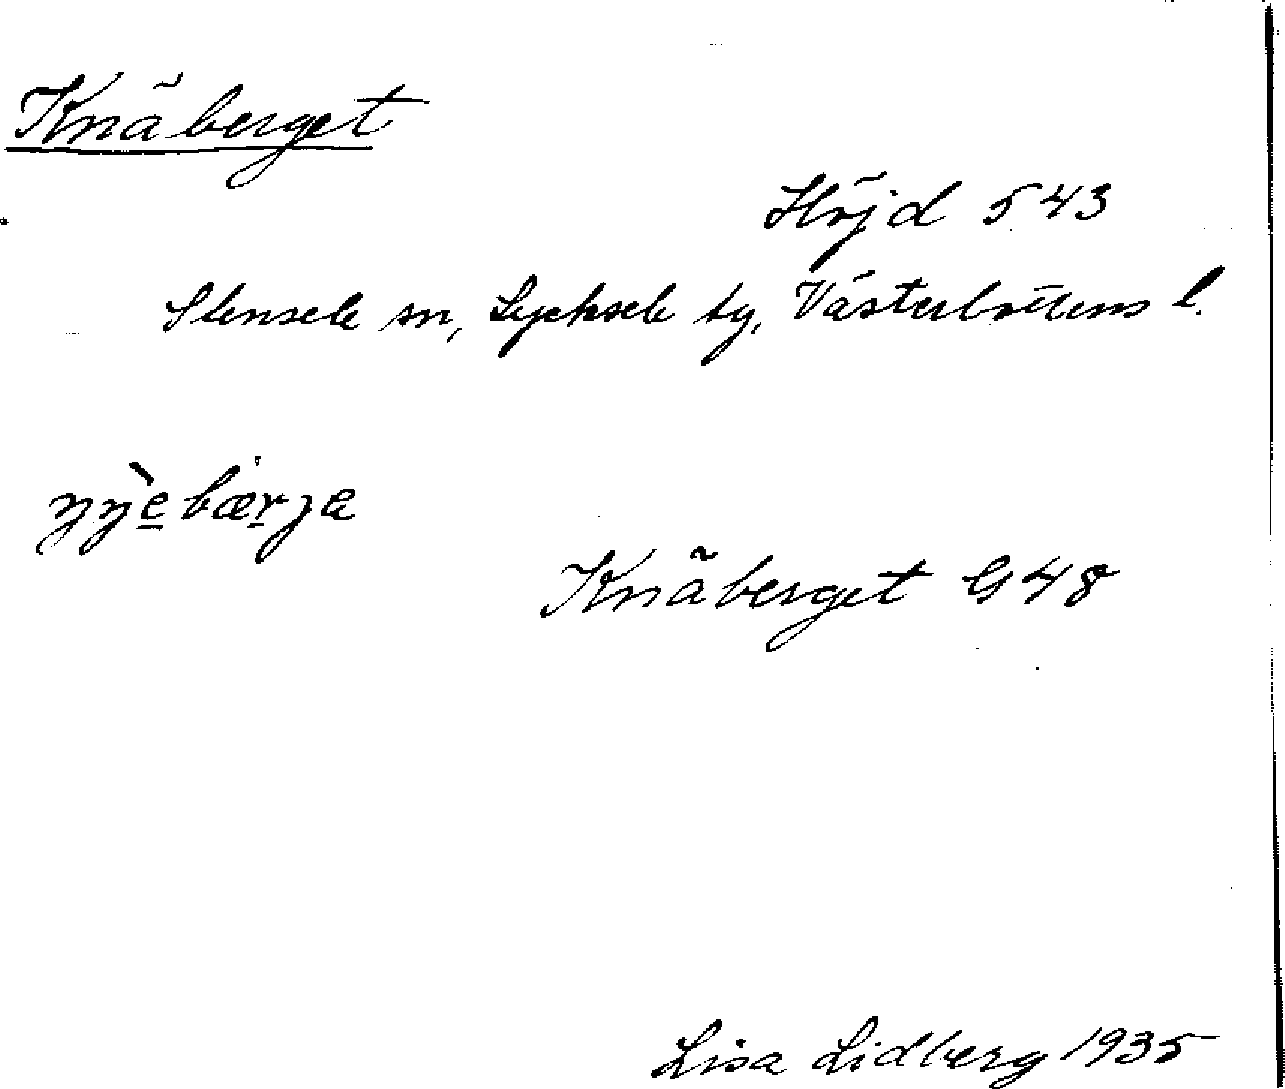 Knäberget
Höjd 543
Stensele sn, Lycksele tg, Västerbottens l.
Knäberget G48
Lisa Lidberg 1935